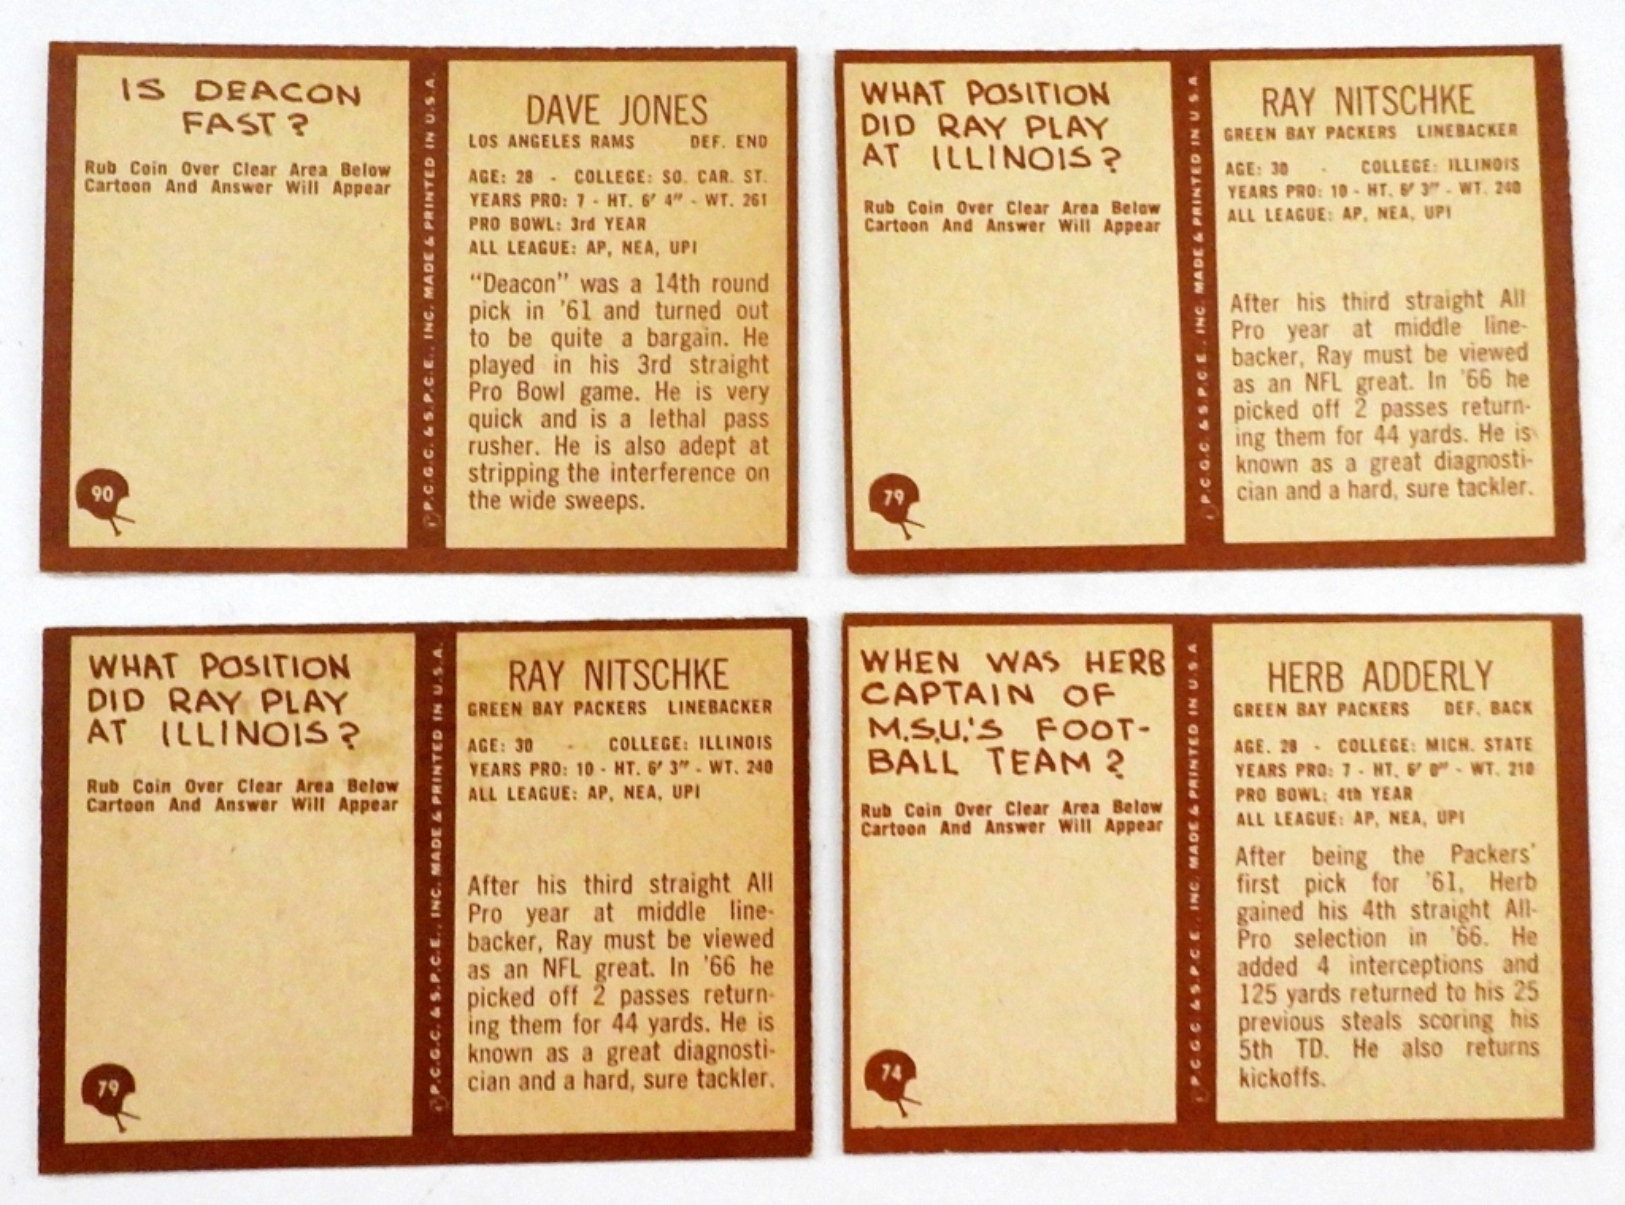 IS DEACON
FAST?
Rub Coin Over Clear Area Below
Cartoon And Answer Will Appear
90
P.C.G.C. & S.P.C.E., INC. MADE & PRINTED IN U.S.A.
DAVE JONES
LOS ANGELES RAMS DEF. END
AGE: 28 - COLLEGE: SO. CAR. ST.
YEARS PRO: 7 - HT. 6' 4" - WT. 261
PRO BOWL: 3rd YEAR
ALL LEAGUE: AP, NEA, UPI
"Deacon" was a 14th round
pick in '61 and turned out
to be quite a bargain. He
played in his 3rd straight
Pro Bowl game. He is very
quick and is a lethal pass
rusher. He is also adept at
stripping the interference on
the wide sweeps.
WHAT POSITION
DID RAY PLAY
AT ILLINOIS?
Rub Coin Over Clear Area Below
Cartoon And Answer Will Appear
79
P.C.G.C. & S.P.C.E., INC. MADE & PRINTED IN U.S.A.
RAY NITSCHKE
GREEN BAY PACKERS LINEBACKER
AGE: 30 - COLLEGE: ILLINOIS
YEARS PRO: 10 - HT. 6' 3" - WT. 240
ALL LEAGUE: AP, NEA, UPI
After his third straight All
Pro year at middle line-
backer, Ray must be viewed
as an NFL great. In '66 he
picked off 2 passes return-
ing them for 44 yards. He is
known as a great diagnosti-
cian and a hard, sure tackler.
WHAT POSITION
DID RAY PLAY
AT ILLINOIS?
Rub Coin Over Clear Area Below
Cartoon And Answer Will Appear
79
P.C.G.C. & S.P.C.E., INC. MADE & PRINTED IN U.S.A.
RAY NITSCHKE
GREEN BAY PACKERS LINEBACKER
AGE: 30 - COLLEGE: ILLINOIS
YEARS PRO: 10 - HT. 6' 3" - WT. 240
ALL LEAGUE: AP, NEA, UPI
After his third straight All
Pro year at middle line-
backer, Ray must be viewed
as an NFL great. In '66 he
picked off 2 passes return-
ing them for 44 yards. He is
known as a great diagnosti-
cian and a hard, sure tackler.
WHEN WAS HERB
CAPTAIN OF
M.S.U.'S FOOT-
BALL TEAM?
Rub Coin Over Clear Area Below
Cartoon And Answer Will Appear
74
P.C.G.C. & S.P.C.E., INC. MADE & PRINTED IN U.S.A.
HERB ADDERLY
GREEN BAY PACKERS DEF. BACK
AGE. 28 - COLLEGE: MICH. STATE
YEARS PRO: 7 - HT. 6' 0" - WT. 210
PRO BOWL: 4th YEAR
ALL LEAGUE: AP, NEA, UPI
After being the Packers'
first pick for '61, Herb
gained his 4th straight All-
Pro selection in '66. He
added 4 interceptions and
125 yards returned to his 25
previous steals scoring his
5th TD. He also returns
kickoffs.